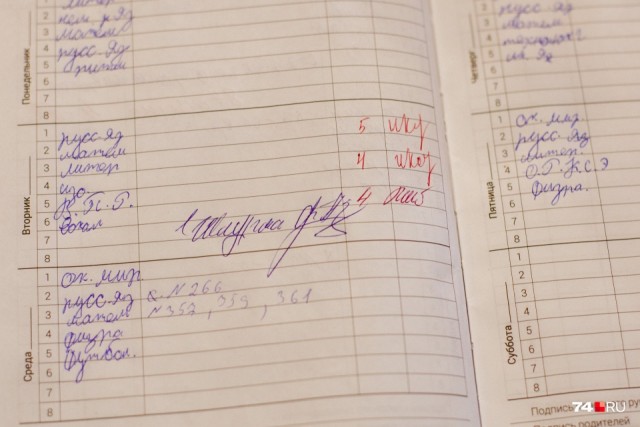 Понедельник
2
3
4
5
6
7
8
нем. яз
матем
русс. яз
ритм
Вторник
1
2
3
4
5
6
7
8
русс. яз
матем
литер
изо.
П. Г.
вокал
5
4
4
Среда
1
2
3
4
5
6
7
8
ок. мир.
русс. яз с. N 266
матем N 352, 359, 361
физра
футбол.
Четверг
2
3
4
5
6
7
8
русс. яз
матем
технолог
ин. яз
Пятница
1
2
3
4
5
6
7
8
ок. мир.
русс. яз
литер.
О. Р. К. С. Э
физра.
Суббота
1
2
3
4
5
6
7
8
Подпись
Подпись родителей
74.RU